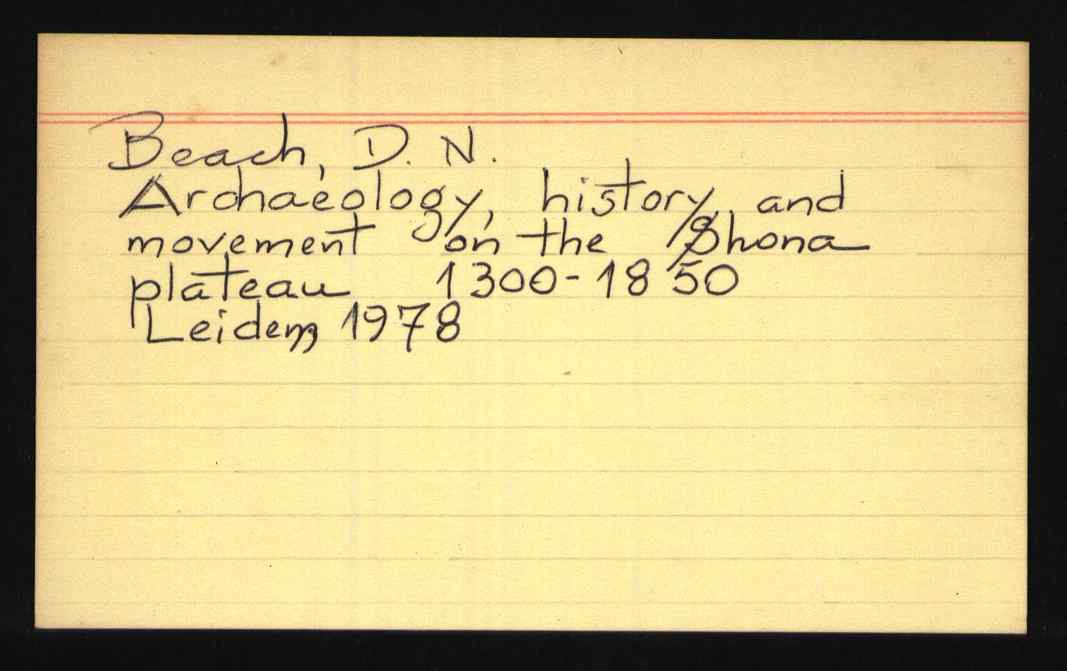 Beach, D. N.
Archaeology, history, and
movement on the Shona
plateau 1300-1850
Leiden, 1978